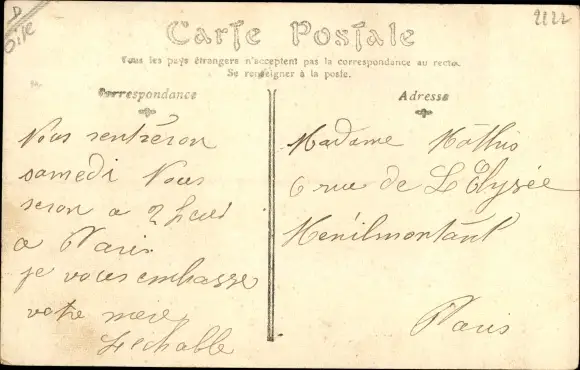 D
Oise
2222
Carte Postale
Tous les pays étrangers n'acceptent pas la correspondance au recto.
Se renseigner à la poste.
Correspondance
Nous rentreron
samedi Nous
seron a 2 heures
a Paris
je vous embrasse
votre mere
Lechable
Adresse
Madame Mathis
6 rue de L'Elysée
Menilmontant
Paris